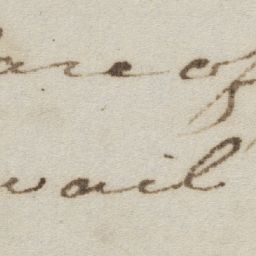 are of
vail